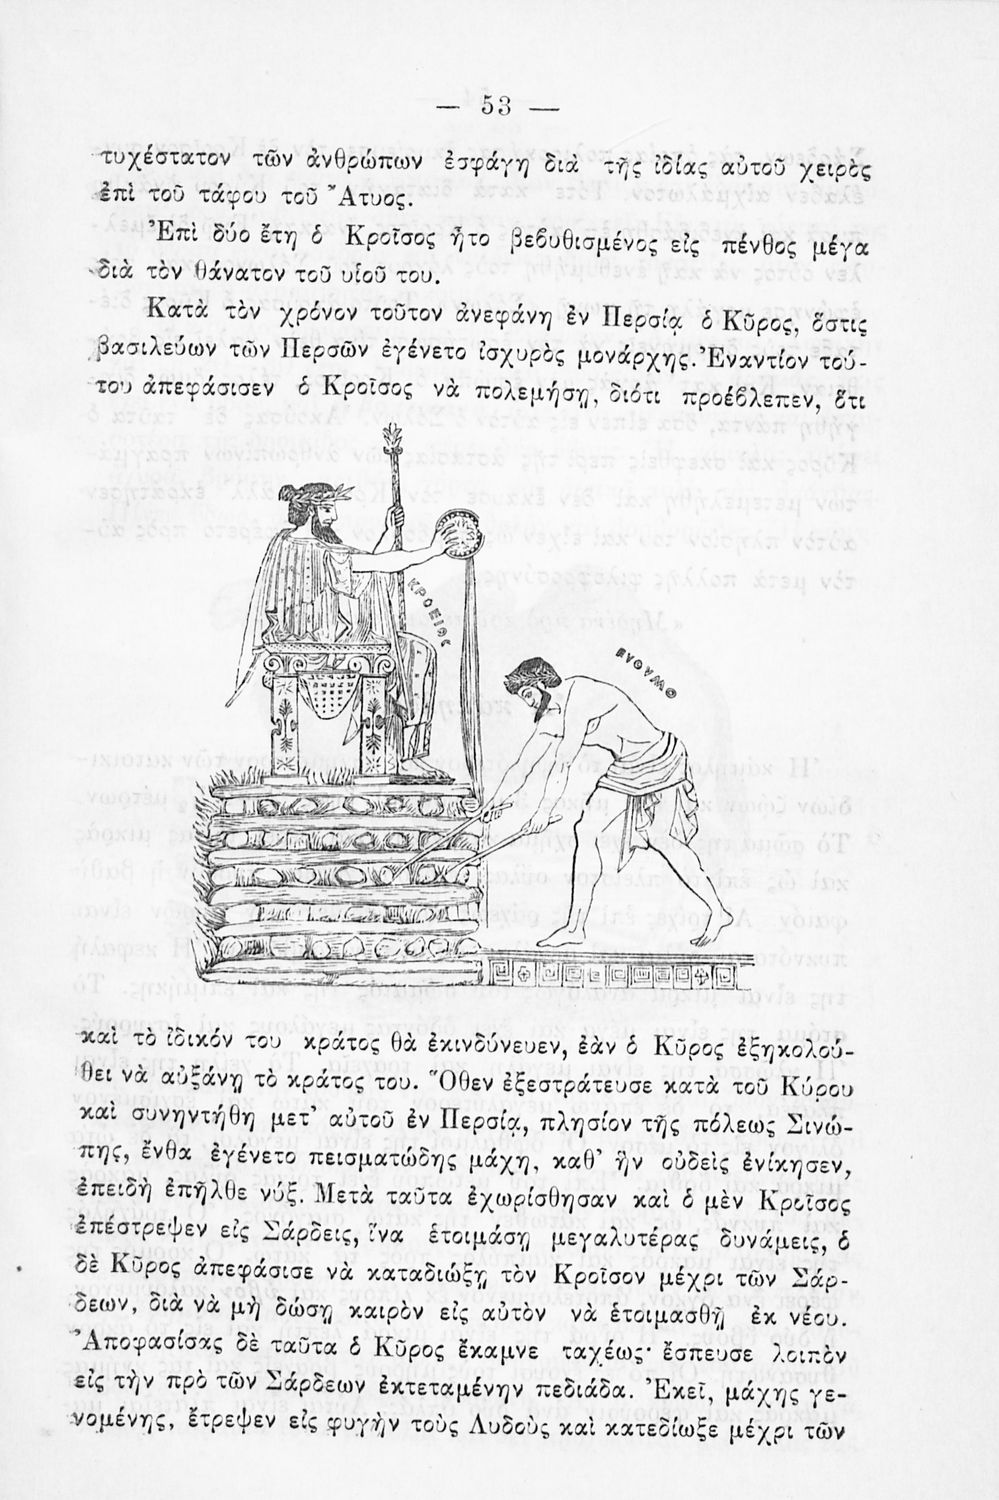 — 53 —
τυχέστατον τῶν ἀνθρώπων ἐσφάγη διὰ τῆς ἰδίας αὐτοῦ χειρὸς
ἐπὶ τοῦ τάφου τοῦ Ἄτυος.
Ἐπὶ δύο ἔτη ὁ Κροῖσος ἦτο βεβυθισμένος εἰς πένθος μέγα
διὰ τὸν θάνατον τοῦ υἱοῦ του.
Κατὰ τὸν χρόνον τοῦτον ἀνεφάνη ἐν Περσίᾳ ὁ Κῦρος, ὅστις
βασιλεύων τῶν Περσῶν ἐγένετο ἰσχυρὸς μονάρχης. Ἐναντίον τού-
του ἀπεφάσισεν ὁ Κροῖσος νὰ πολεμήσῃ, διότι προέβλεπεν, ὅτι
ΚΡΟΕΙΟΣ
ΕΥΘΥΜΟ
καὶ τὸ ἰδικόν του κράτος θὰ ἐκινδύνευεν, ἐὰν ὁ Κῦρος ἐξηκολού-
θει νὰ αὐξάνῃ τὸ κράτος του. Ὅθεν ἐξεστράτευσε κατὰ τοῦ Κύρου
καὶ συνηντήθη μετ' αὐτοῦ ἐν Περσίᾳ, πλησίον τῆς πόλεως Σινώ-
πης, ἔνθα ἐγένετο πεισματώδης μάχη, καθ' ἣν οὐδεὶς ἐνίκησεν,
ἐπειδὴ ἐπῆλθε νύξ. Μετὰ ταῦτα ἐχωρίσθησαν καὶ ὁ μὲν Κροῖσος
ἐπέστρεψεν εἰς Σάρδεις, ἵνα ἑτοιμάσῃ μεγαλυτέρας δυνάμεις, ὁ
δὲ Κῦρος ἀπεφάσισε νὰ καταδιώξῃ τὸν Κροῖσον μέχρι τῶν Σάρ-
δεων, διὰ νὰ μὴ δώσῃ καιρὸν εἰς αὐτὸν νὰ ἑτοιμασθῇ ἐκ νέου.
Ἀποφασίσας δὲ ταῦτα ὁ Κῦρος ἔκαμνε ταχέως· ἔσπευσε λοιπὸν
εἰς τὴν πρὸ τῶν Σάρδεων ἐκτεταμένην πεδιάδα. Ἐκεῖ, μάχης γε-
νομένης, ἔτρεψεν εἰς φυγὴν τοὺς Λυδοὺς καὶ κατεδίωξε μέχρι τῶν